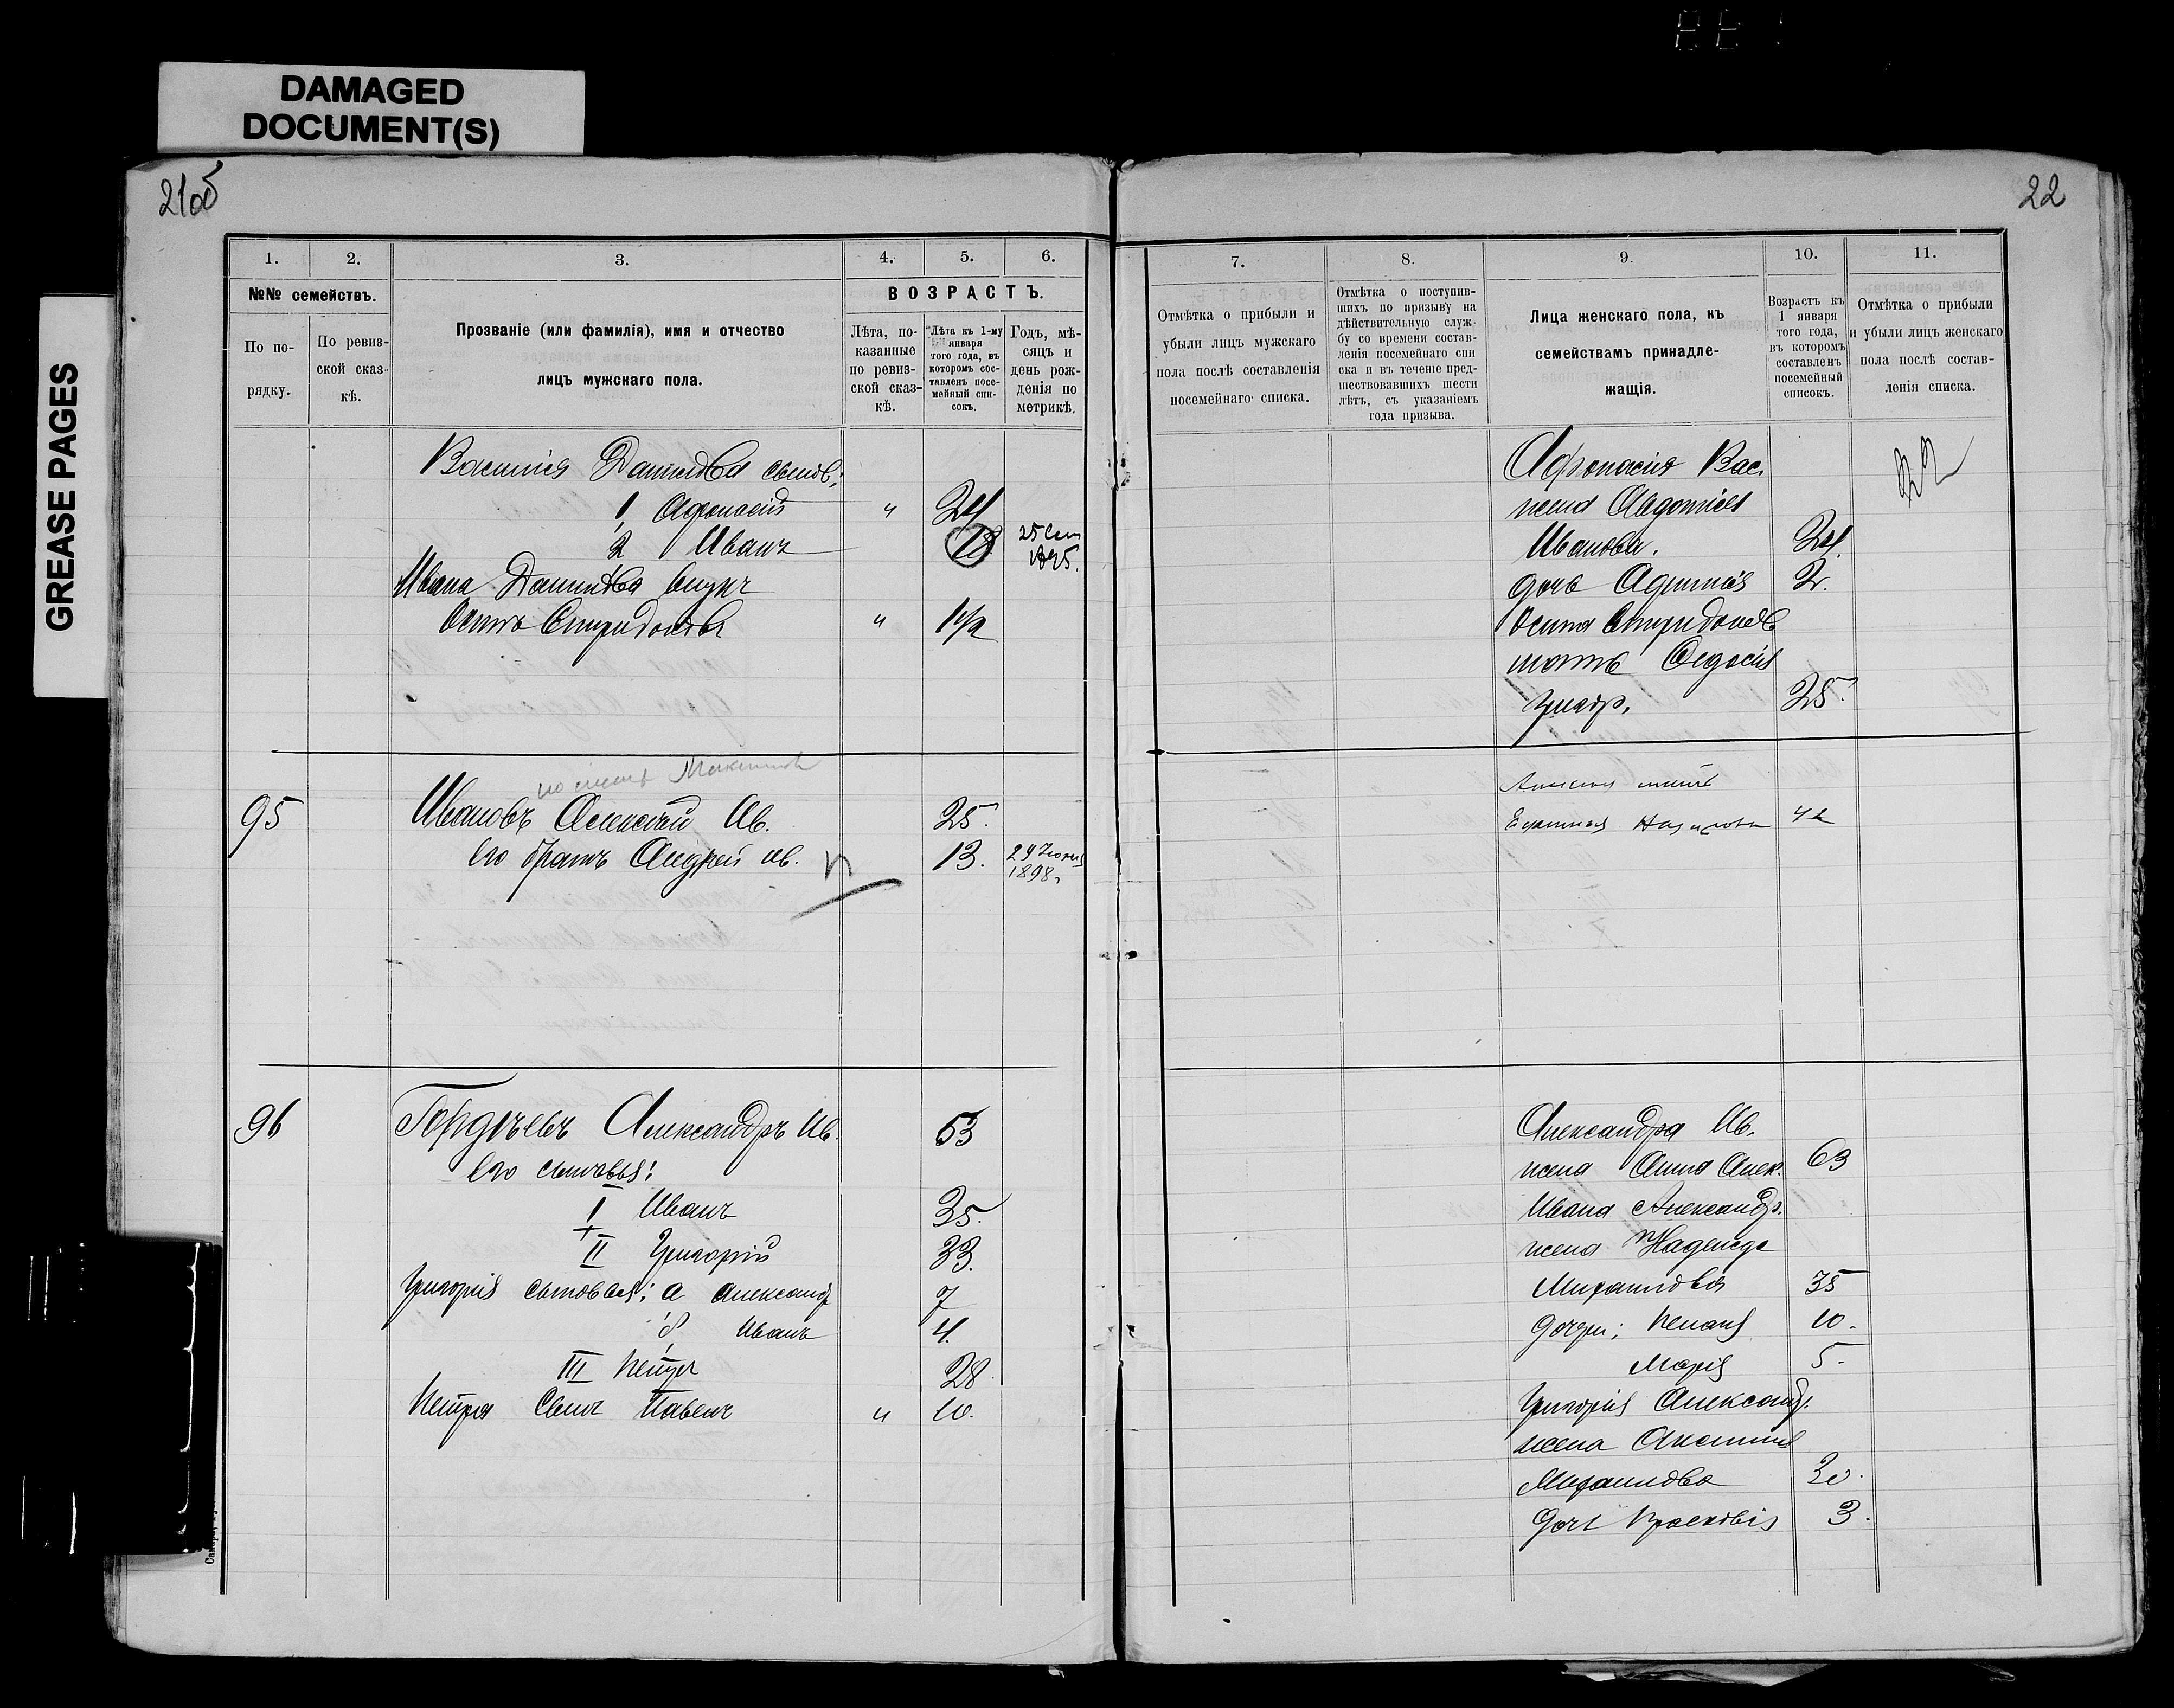 DAMAGED
DOCUMENT(S)
GREASE PAGES
21об
22
1.
2.
3.
4.
5.
6.
№№ семействъ.
По по-
рядку.
По ревиз-
ской сказ-
кѣ.
Прозваніе (или фамилія), имя и отчество
лицъ мужскаго пола.
ВОЗРАСТЪ.
Лѣта, по-
казанные
по ревиз-
ской сказ-
кѣ.
Лѣта къ 1-му
января
того года, въ
которомъ сос-
тавленъ посе-
мейный спи-
сокъ.
Годъ, мѣ-
сяцъ и
день рож-
денія по
метрикѣ.
Василія Данилова сынов:
1 Афонасій " 24
2 Иванъ 18 25 Сен
1895.
Ивана Данилова внукъ
Осипъ Спиридоновъ " 1/2
95 Ивановъ Алексѣй Ив. 25.
Его братъ Андрей ив. 13. 29 Іюня
1898.
96 Гордѣевъ Александръ Ив. 53
Его сыновья:
I Иванъ 35.
II Григорій 33.
Григорія сыновья: а Александр 7
б Иванъ 4.
III Петръ 28
Петра Сынъ Павелъ " 10.
7.
8.
9.
10.
11.
Отмѣтка о прибыли и
убыли лицъ мужскаго
пола послѣ составленія
посемейнаго списка.
Отмѣтка о поступив-
шихъ по призыву на
дѣйствительную служ-
бу со времени состав-
ленія посемейнаго спи
ска и въ теченіе пред-
шествовавшихъ шести
лѣтъ, съ указаніемъ
года призыва.
Лица женскаго пола, къ
семействамъ принадле-
жащія.
Возрастъ къ
1 января
того года,
въ которомъ
составленъ
посемейный
списокъ.
Отмѣтка о прибыли
и убыли лицъ женскаго
пола послѣ состав-
ленія списка.
Афонасія Вас.
22
жена
Иванова. 24.
дочь 2.
Осипа Спиридонов
мать Федосія
Григор. 25.
42
Александра Ив.
жена Анна Алек. 63
Ивана Александр.
жена Надежда
Михаилова 35
дочери: 10.
Марія 5.
Григорія Александр.
жена
Михаилова 30.
дочь Прасковія 3.